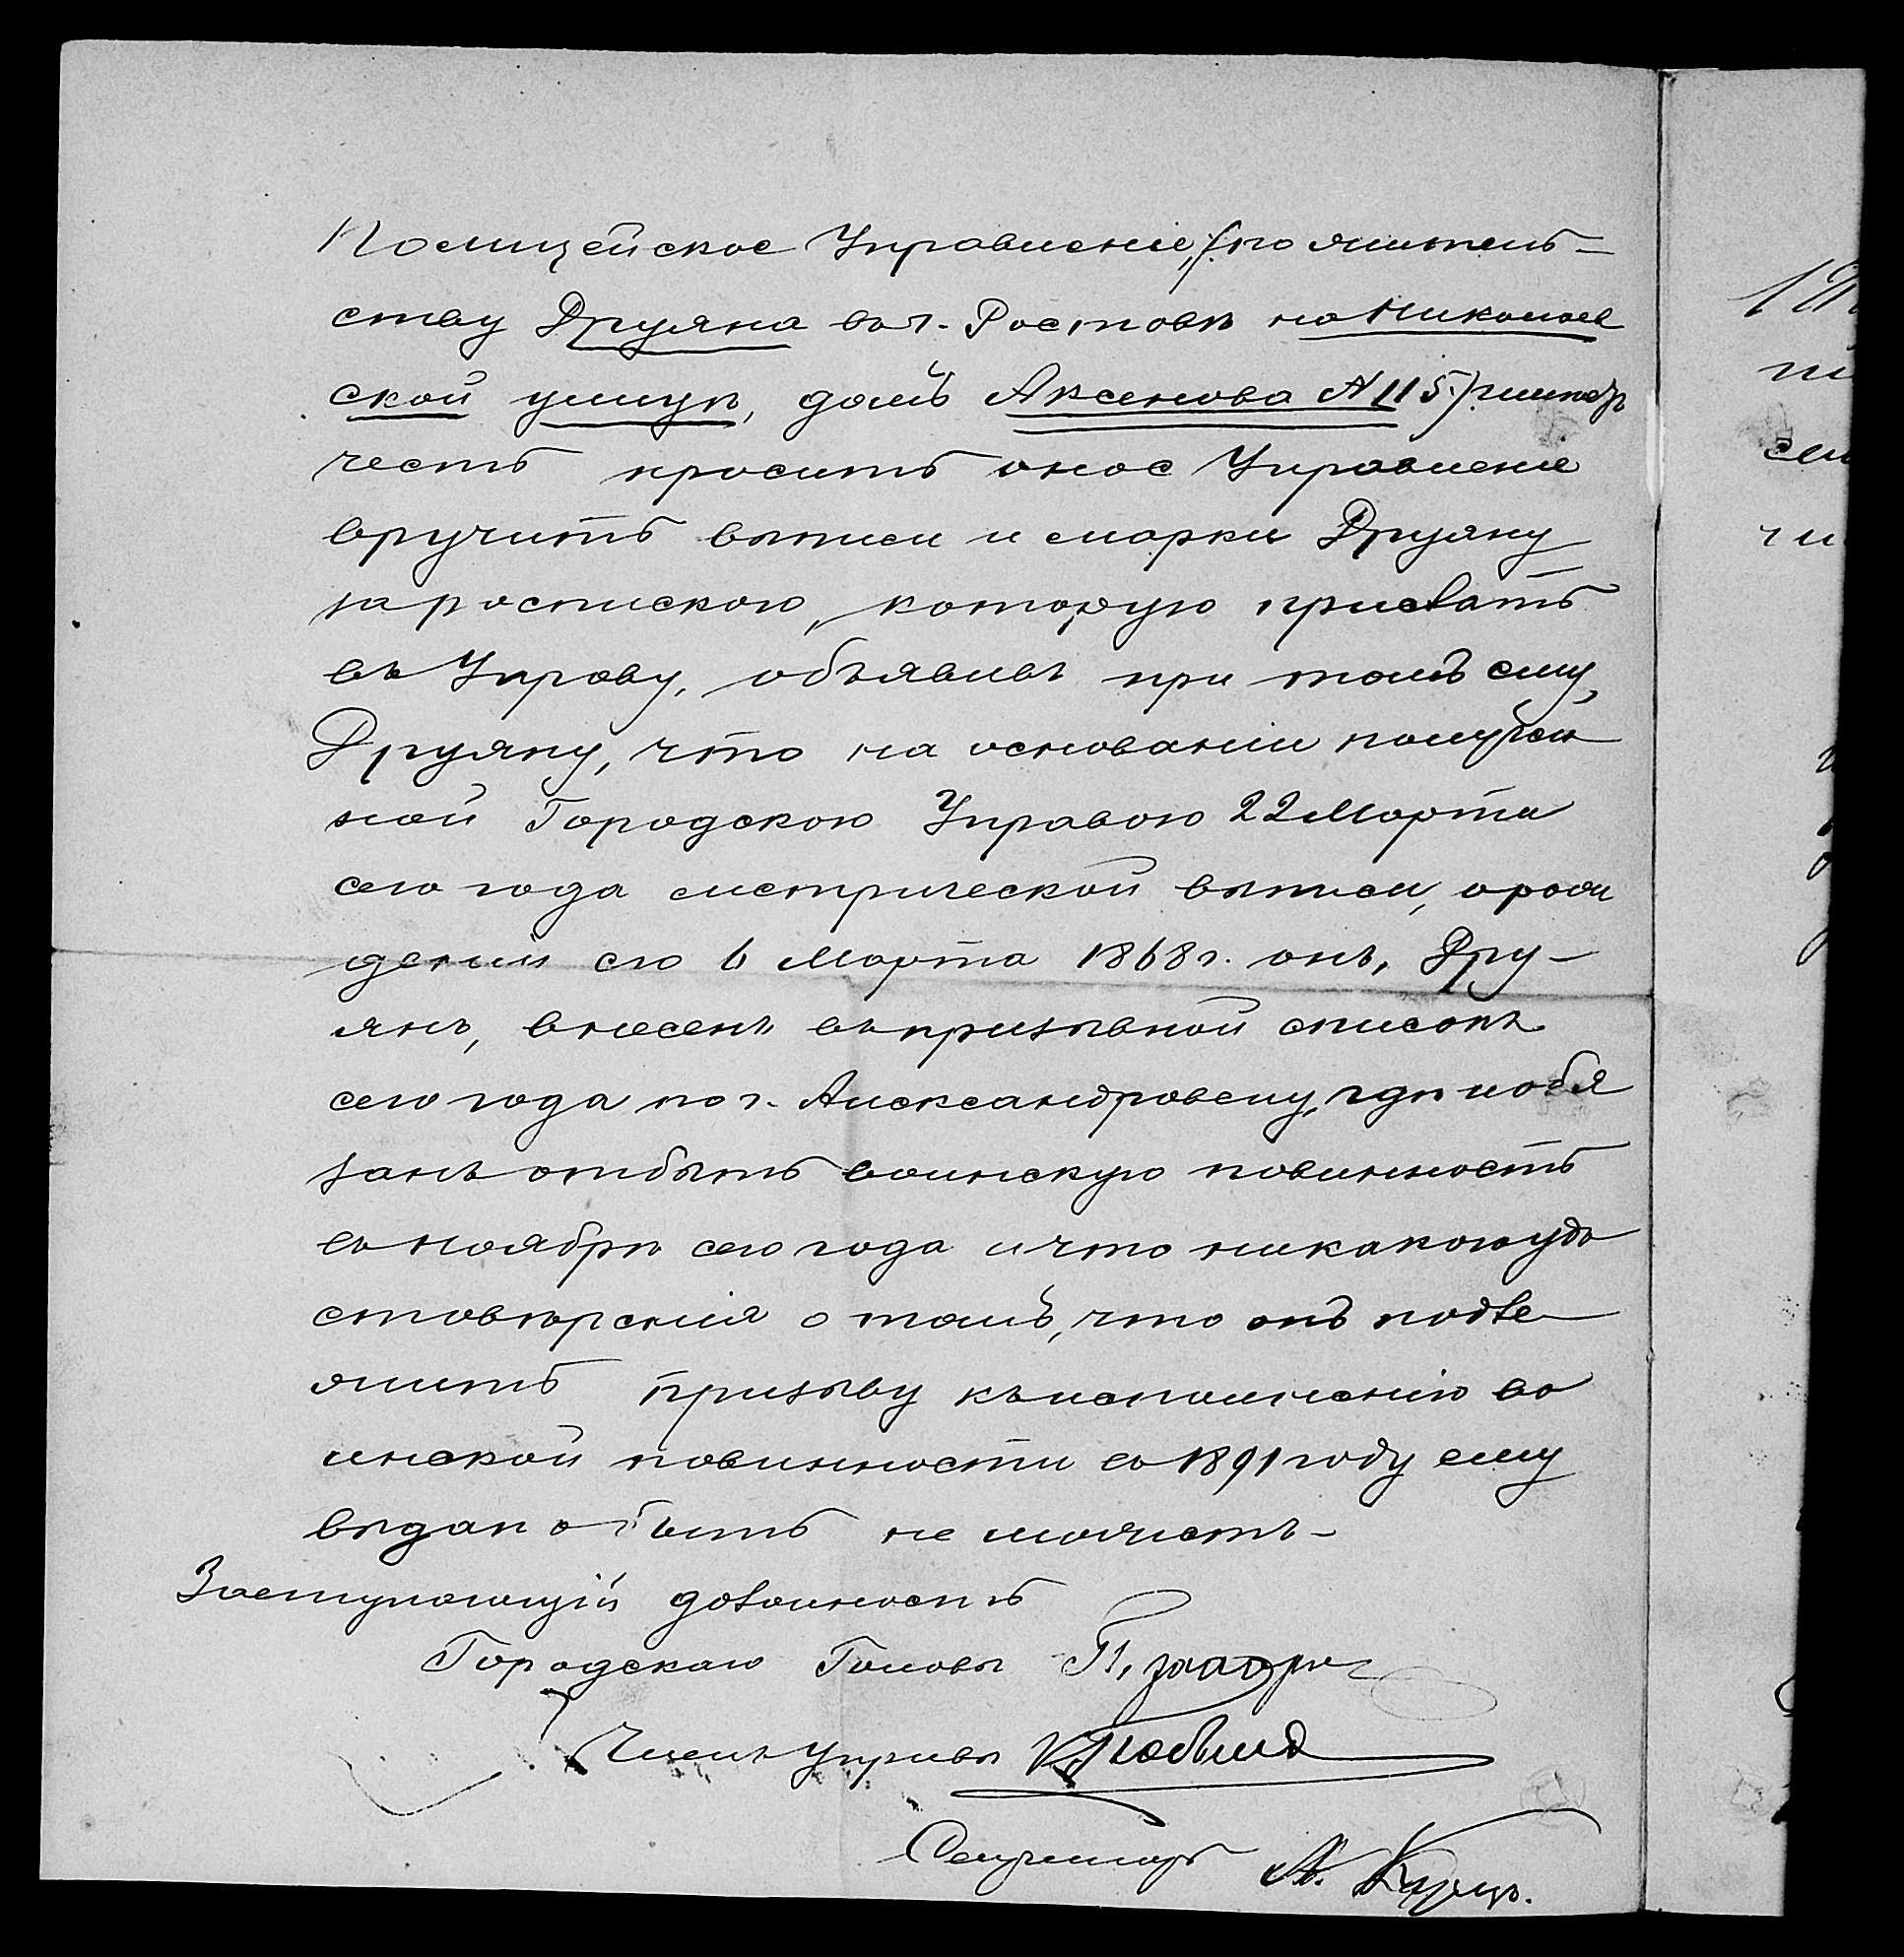 Полицейское Управленіе, (по житель-
ству Друяна в г. Ростовѣ на Николаев
ской улицѣ, домъ Аксенова № 115) имѣетъ
честь просить оное Управленіе
вручить выписи и марки Друяну
за роспискою, которую прислать
въ Управу, объявивъ при томъ ему,
Друяну, что на основаніи получен
ной Городскою Управою 22 Марта
сего года метрической выписи, о рож
деніи его 6 Марта 1868 г. онъ, Дру-
янъ, внесенъ въ призывной списокъ
сего года по г. Александровску, гдѣ и обя
занъ отбыть воинскую повинность
въ Ноябрѣ сего года и что никакого удо
стовѣренія о томъ, что онъ подле
житъ призыву къ исполненію во
инской повинности въ 1891 году ему
выдано быть не можетъ-
Заступающій должность
Городскаго Головы
Членъ Управы
Секретарь А.